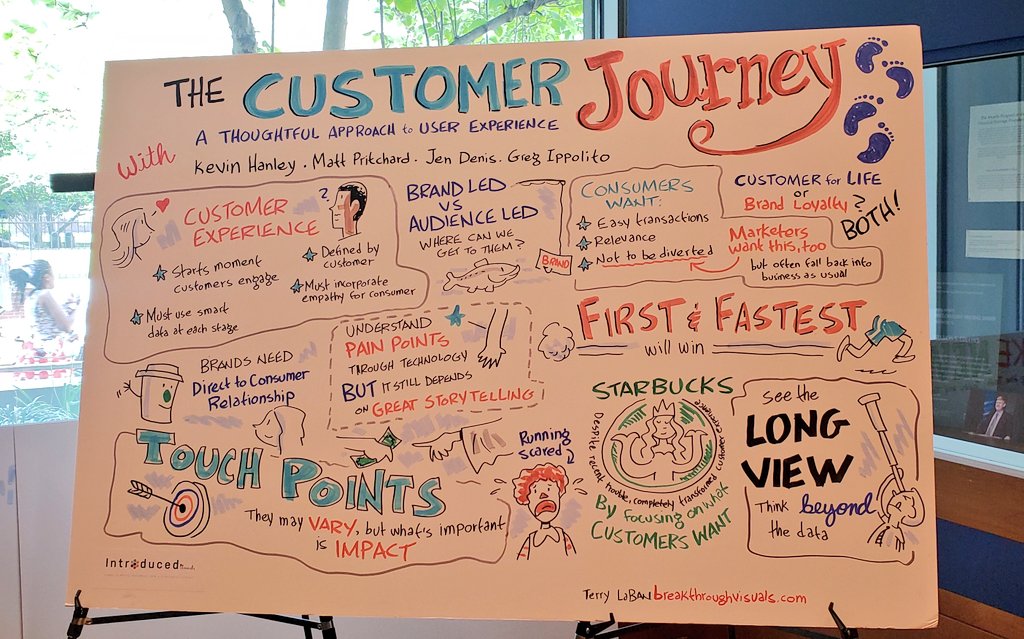 THE CUSTOMER Journey
A THOUGHTFUL APPROACH to USER EXPERIENCE
with
Kevin Hanley . Matt Pritchard . Jen Denis . Greg Ippolito
CUSTOMER
EXPERIENCE
?
Starts moment
customers engage
Must use smart
data at each stage
Defined by
customer
Must incorporate
empathy for consumer
BRAND LED
VS
AUDIENCE LED
WHERE CAN WE
GET TO THEM?
BRAND
CONSUMERS
WANT:
Easy transactions
Relevance
Not to be diverted
CUSTOMER for LIFE
or
Brand Loyalty?
BOTH!
Marketers
want this, too
but often fall back into
business as usual
UNDERSTAND
PAIN POINTS
THROUGH TECHNOLOGY
BUT IT STILL DEPENDS
ON GREAT STORYTELLING
FIRST & FASTEST
will win
BRANDS NEED
Direct to Consumer
Relationship
TOUCH POINTS
They may VARY, but what's important
is IMPACT
Running
scared
STARBUCKS
Despite recent trouble, completely transformed customer experience
By focusing on what
CUSTOMERS WANT
see the
LONG
VIEW
Think beyond
the data
Introduced
Terry LaBan breakthroughvisuals.com